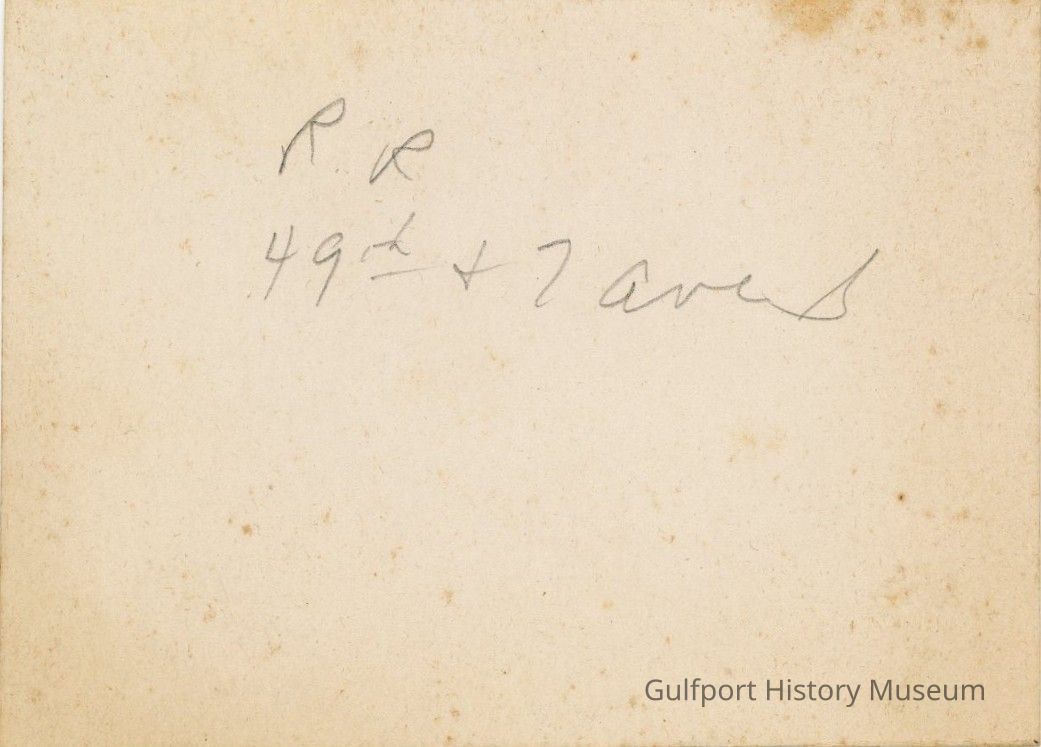 R R
49th + 7 ave S
Gulfport History Museum